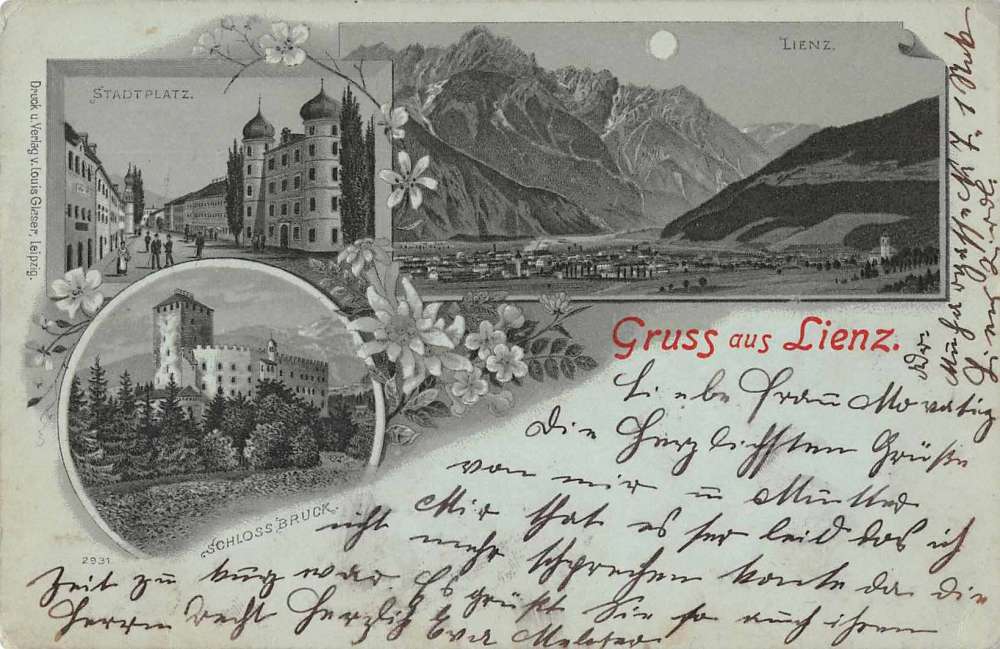 STADTPLATZ.
LIENZ.
Druck u. Verlag v. Louis Glaser, Leipzig.
SCHLOSS BRUCK.
2931.
Gruss aus Lienz.
Liebe Frau
Die Herzlichsten Grüße
von mir u Mutter
Mir that es ser leid das ich
nicht mehr schprechen konte da die
Zeit zu kurz war Es grüßt Sie so auch ihren
Herrn recht Herzlig Eva